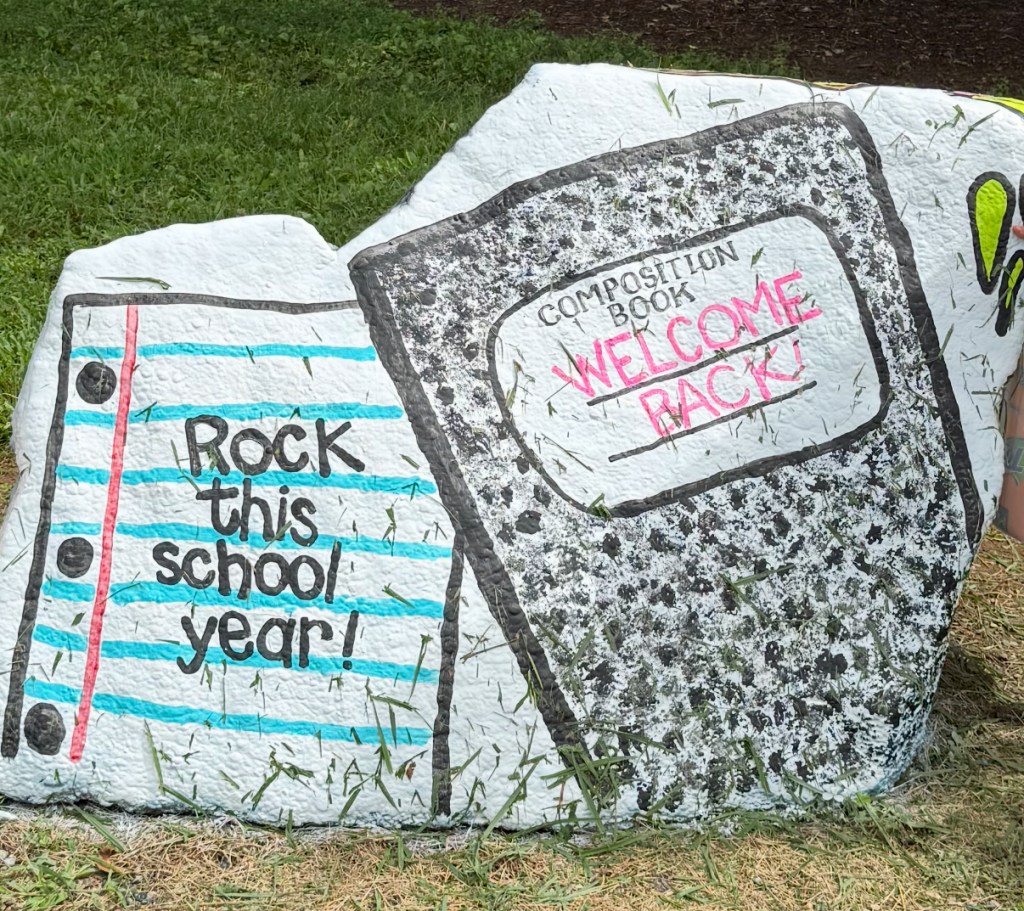 Rock
this
school
year!
COMPOSITION
BOOK
WELCOME
BACK!